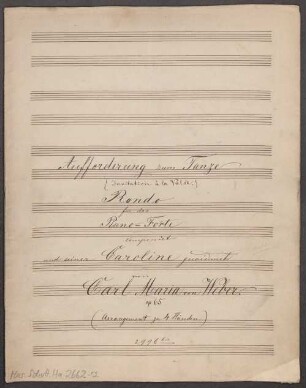 Aufforderung zum Tanze
(Invitation à la Valse)
Rondo
für das
Piano-Forte
componirt
und seiner Caroline gewidmet
von
Carl Maria von Weber.
op 65
(Arrangement zu 4 Händen)